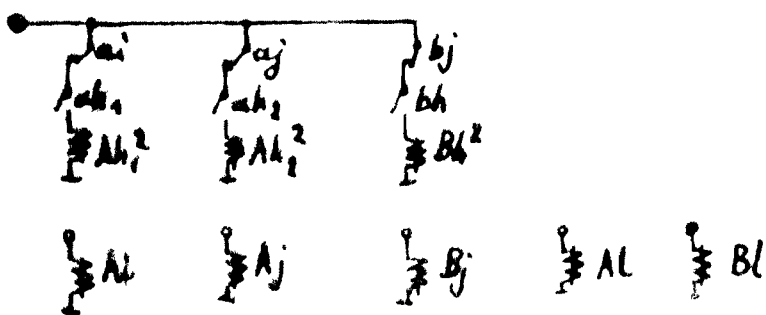 ai aj bj
ah₁ ah₂ bh
Ah₁² Ah₂² Bh²
Ai Aj Bj Al Bl